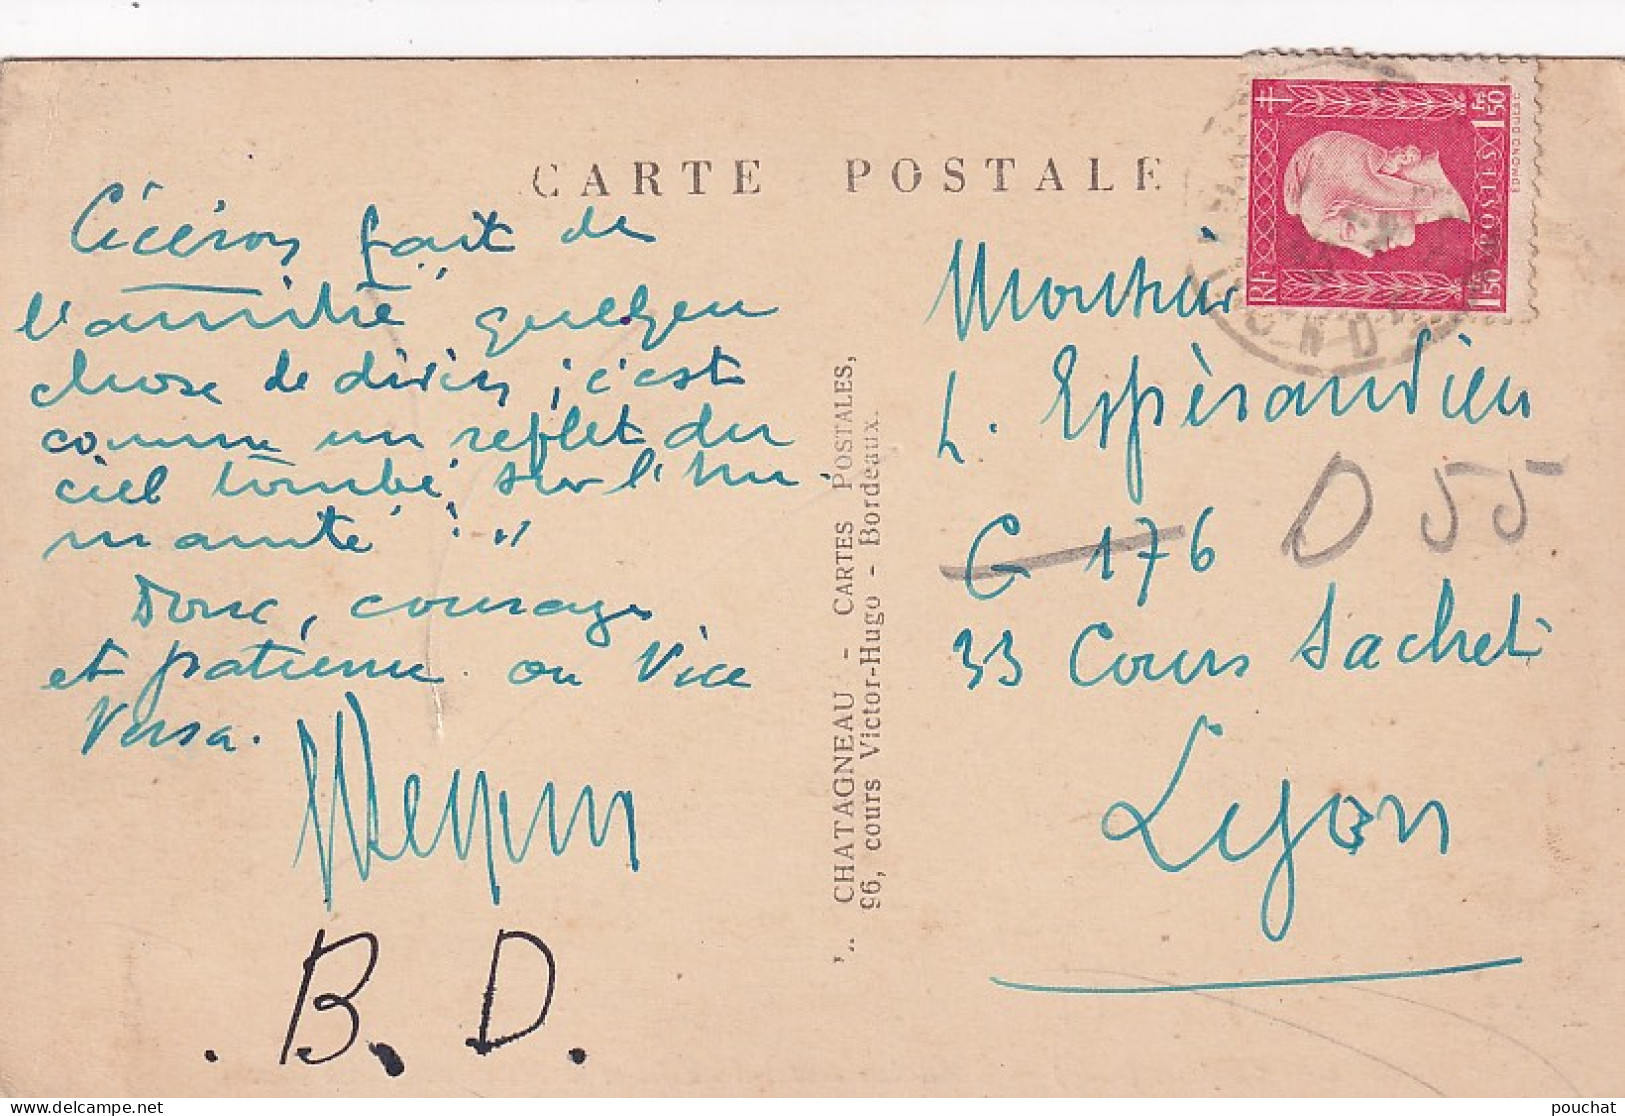 CARTE POSTALE
Cicéron fait de
l'amitié" quelque
chose de divin ; c'est
comme un reflet du
ciel tombé, sur l'hu
manité."
Donc, courage
et patience ou Vice
Versa.
B. D.
CHATAGNEAU - CARTES POSTALES,
96, cours Victor-Hugo - Bordeaux.
RF
POSTES
1F50
1,50
EDMOND DULAC
Monsieur
L. Espérandieu
G 176
D 55
33 Cours Sachet
Lyon
pouchat